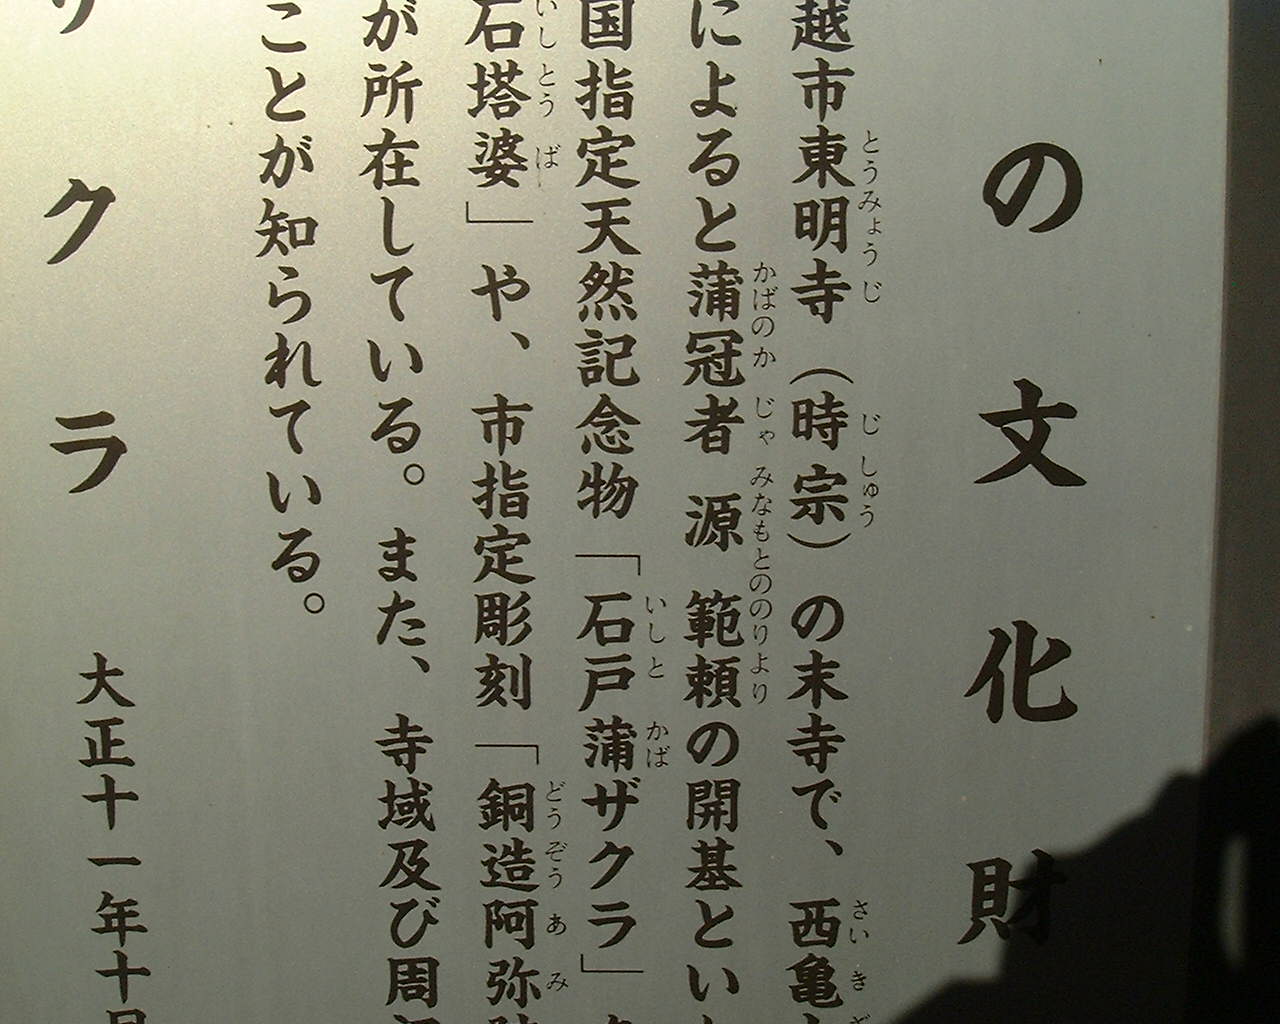 の文化財
越市東明寺（時宗）の末寺で、西亀
によると蒲冠者 源 範頼の開基とい
国指定天然記念物「石戸蒲ザクラ」
石塔婆」や、市指定彫刻「銅造阿弥
が所在している。また、寺域及び周
ことが知られている。
クラ 大正十一年十